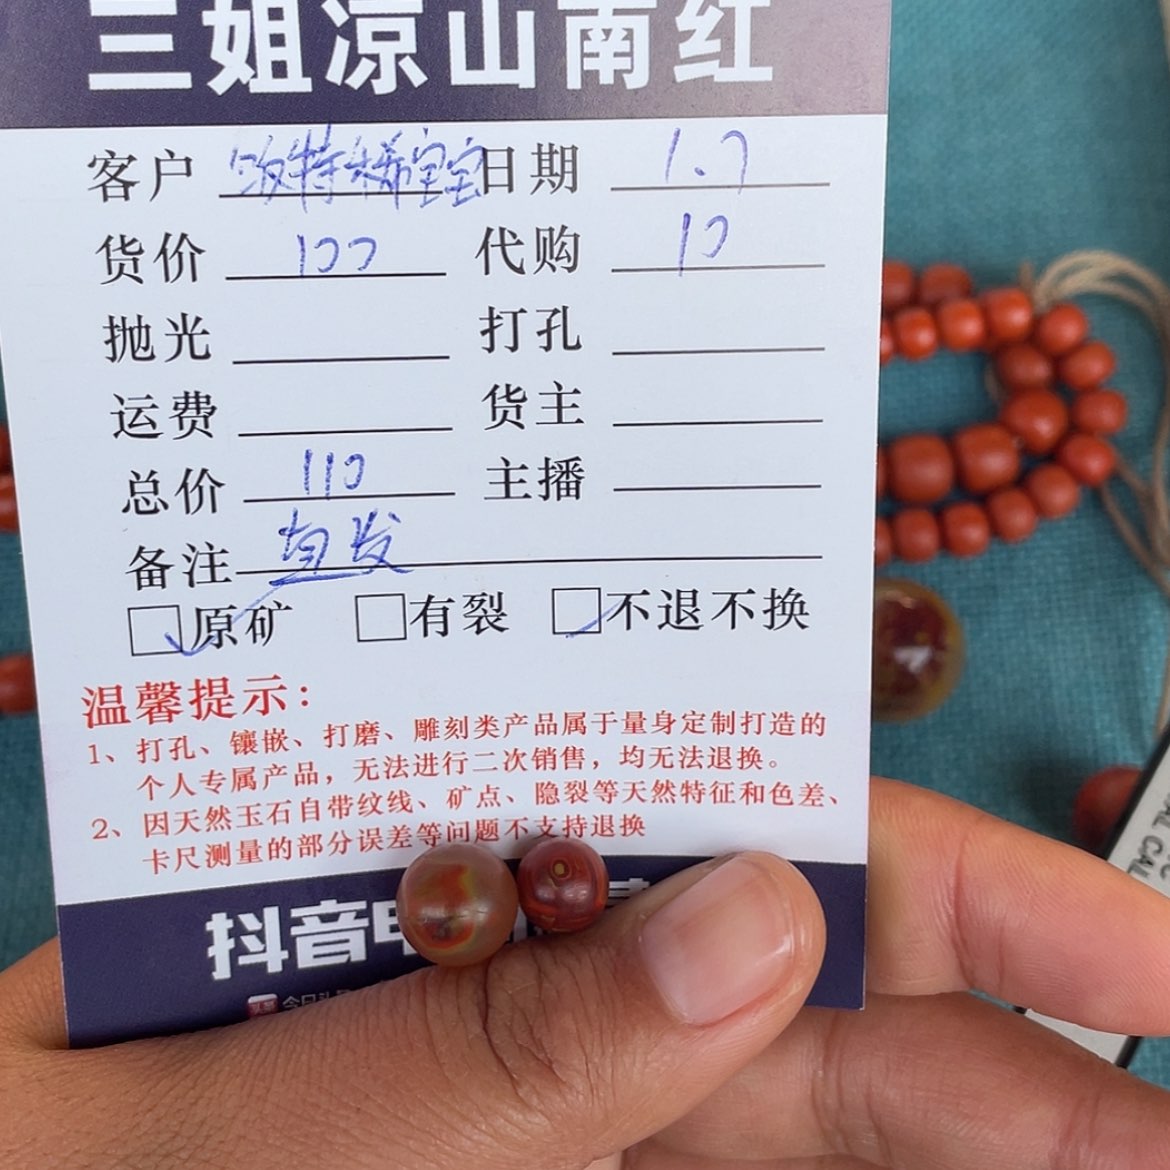 三姐凉山南红
客户 饭特稀宝宝 日期 1.7
货价 100 代购 10
抛光 打孔
运费 货主
总价 110 主播
备注 直发
原矿 有裂 不退不换
温馨提示：
1、打孔、镶嵌、打磨、雕刻类产品属于量身定制打造的
个人专属产品，无法进行二次销售，均无法退换。
2、因天然玉石自带纹线、矿点、隐裂等天然特征和色差、
卡尺测量的部分误差等问题不支持退换
抖音